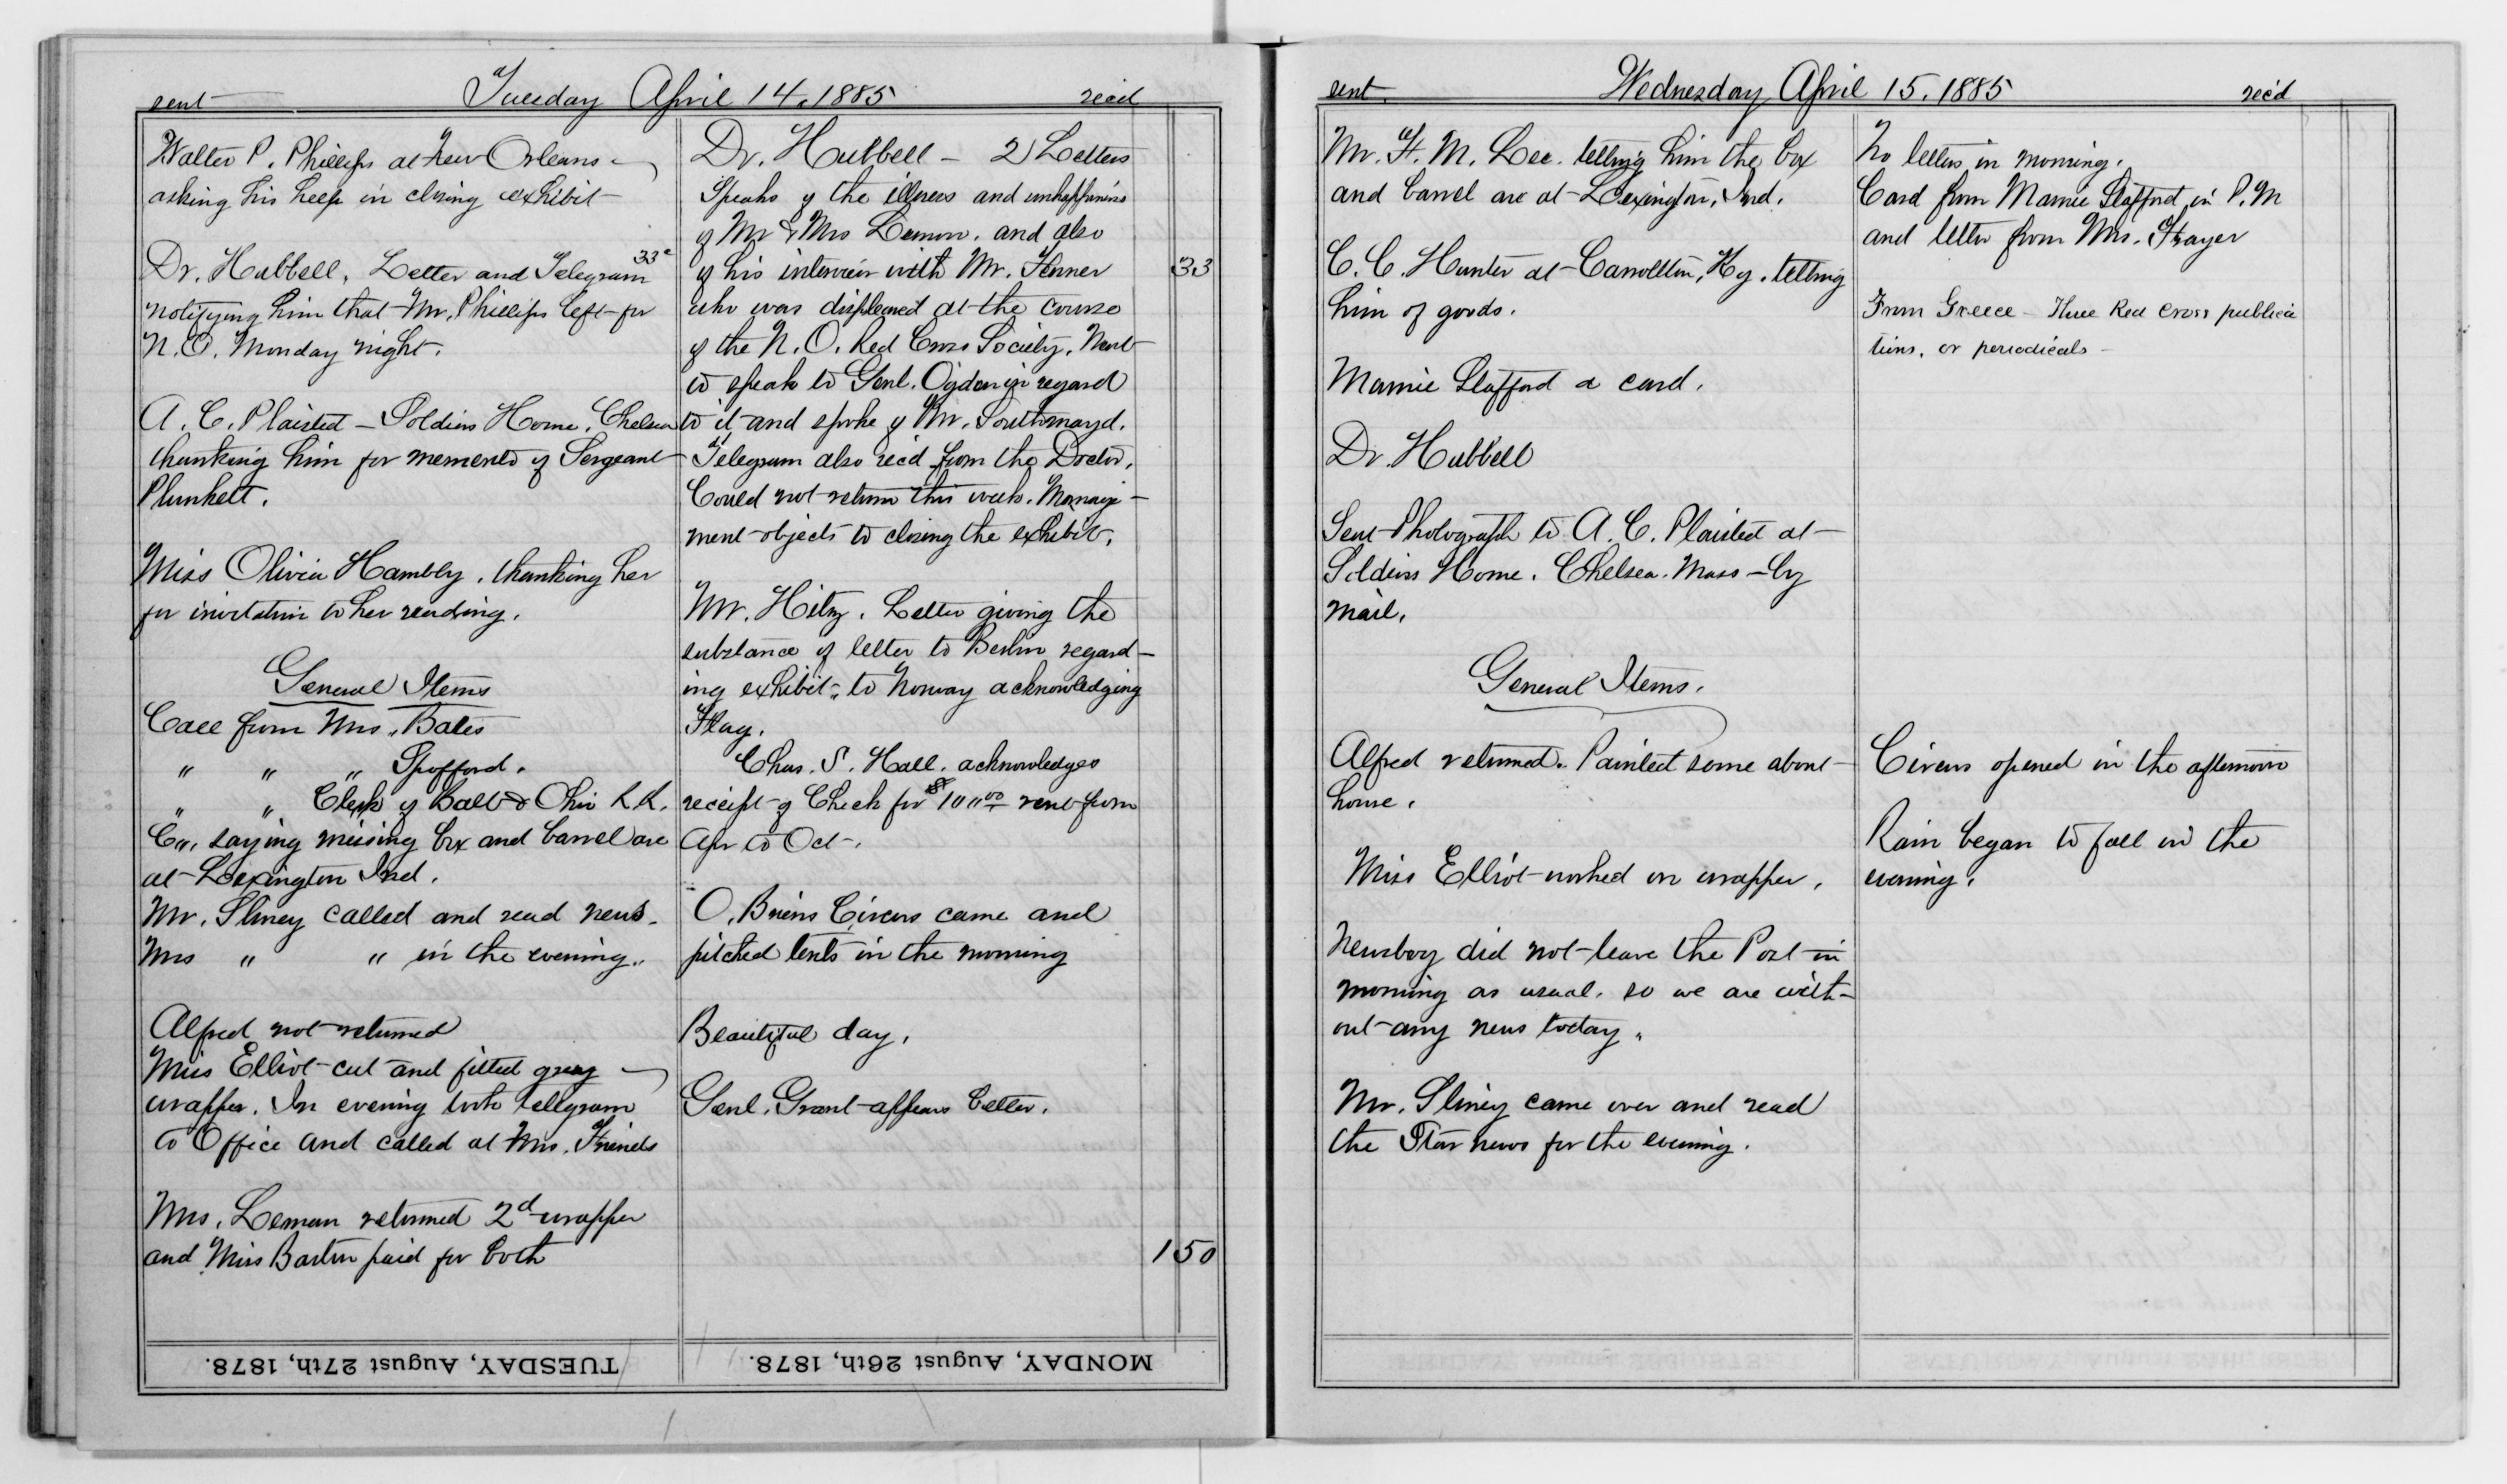 sent Tuesday April 14, 1885 rec'd
Walter P. Phillips at New Orleans
asking his help in closing exhibit
Dr. Hubbell, Letter and Telegram 33c
notifying him that Mr. Phillips left for
N.O. Monday night.
A. C. Plaisted — Soldiers Home, Chelsea
thanking him for memento of Sergeant
Plunkett.
Miss Olivia Hambly, thanking her
for invitation to her reading.
General Items
Call from Mrs. Bates
" " " Spofford.
" " Clerk of Balt & Ohio R.R.
Co., saying missing box and barrel are
at Lexington Ind.
Mr. Sliney called and read news.
Mrs " " in the evening.
Alfred not returned
Miss Elliot cut and fitted gray
wrapper. In evening took tellgram
to Office and called at Mrs. Friends
Mrs. Leman returned 2d wrapper
and Miss Barton paid for both
Dr. Hubbell — 2 Letters
Speaks of the illness and unhappiness
of Mr & Mrs Lemon, and also
of his interview with Mr. Fenner 33
who was displeased at the course
of the N. O. Red Cross Society. Went
to speak to Genl. Ogden in regard
to it and spoke of Mr. Southmayd.
Telegram also rec'd from the Doctor.
Could not return this week. Manage-
ment objects to closing the exhibit.
Mr. Hitz. Letter giving the
substance of letter to Berlin regard-
ing exhibit, to Norway acknowledging
Flag.
Chas. S. Hall, acknowledges
receipt of Check for $10000 rent from
Apr to Oct.
O, Briens Circus came and
pitched tents in the morning
Beautiful day.
Genl. Grant appears better.
1 50
TUESDAY, August 27th, 1878.
MONDAY, August 26th, 1878.
sent Wednesday April 15, 1885 rec'd
Mr. F. M. Lee, telling him the box
and barrel are at Lexington, Ind.
C. C. Hunter at Carrollton, Ky, telling
him of goods.
Mamie Stafford a card.
Dr. Hubbell
Sent Photograph to A. C. Plaisted at
Soldiers Home. Chelsea. Mass — by
mail.
General Items.
Alfred returned. Painted some about
house.
Miss Elliot worked on wrapper.
Newsboy did not leave the Post in
morning as usual, so we are with-
out any news today.
Mr. Sliney came over and read
the Star news for the evening.
No letters in morning.
Card from Mamie Stafford in P.M
and letter from Mrs. Strayer
From Greece — Three Red Cross publica
tions, or periodicals —
Circus opened in the afternoon
Rain began to fall in the
evening.